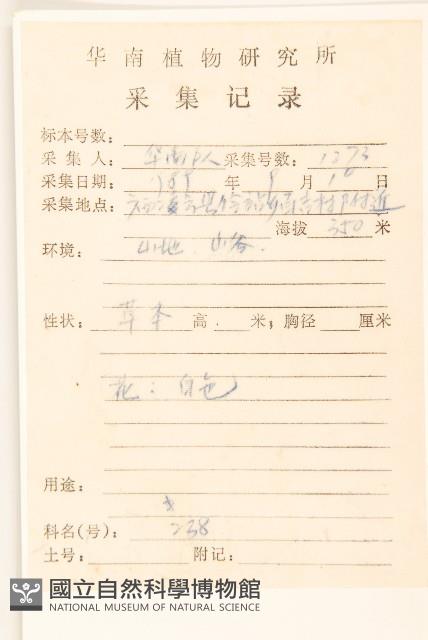 华南植物研究所
采集记录
标本号数：
采集人：华南队 采集号数：1273
采集日期：1989年9月10日
采集地点：村附近
海拔 350 米
环境：山地 山谷.
性状：草本 高 米；胸径 厘米
花：白色
用途：
科名(号)：238
土号： 附记：
國立自然科學博物館
NATIONAL MUSEUM OF NATURAL SCIENCE